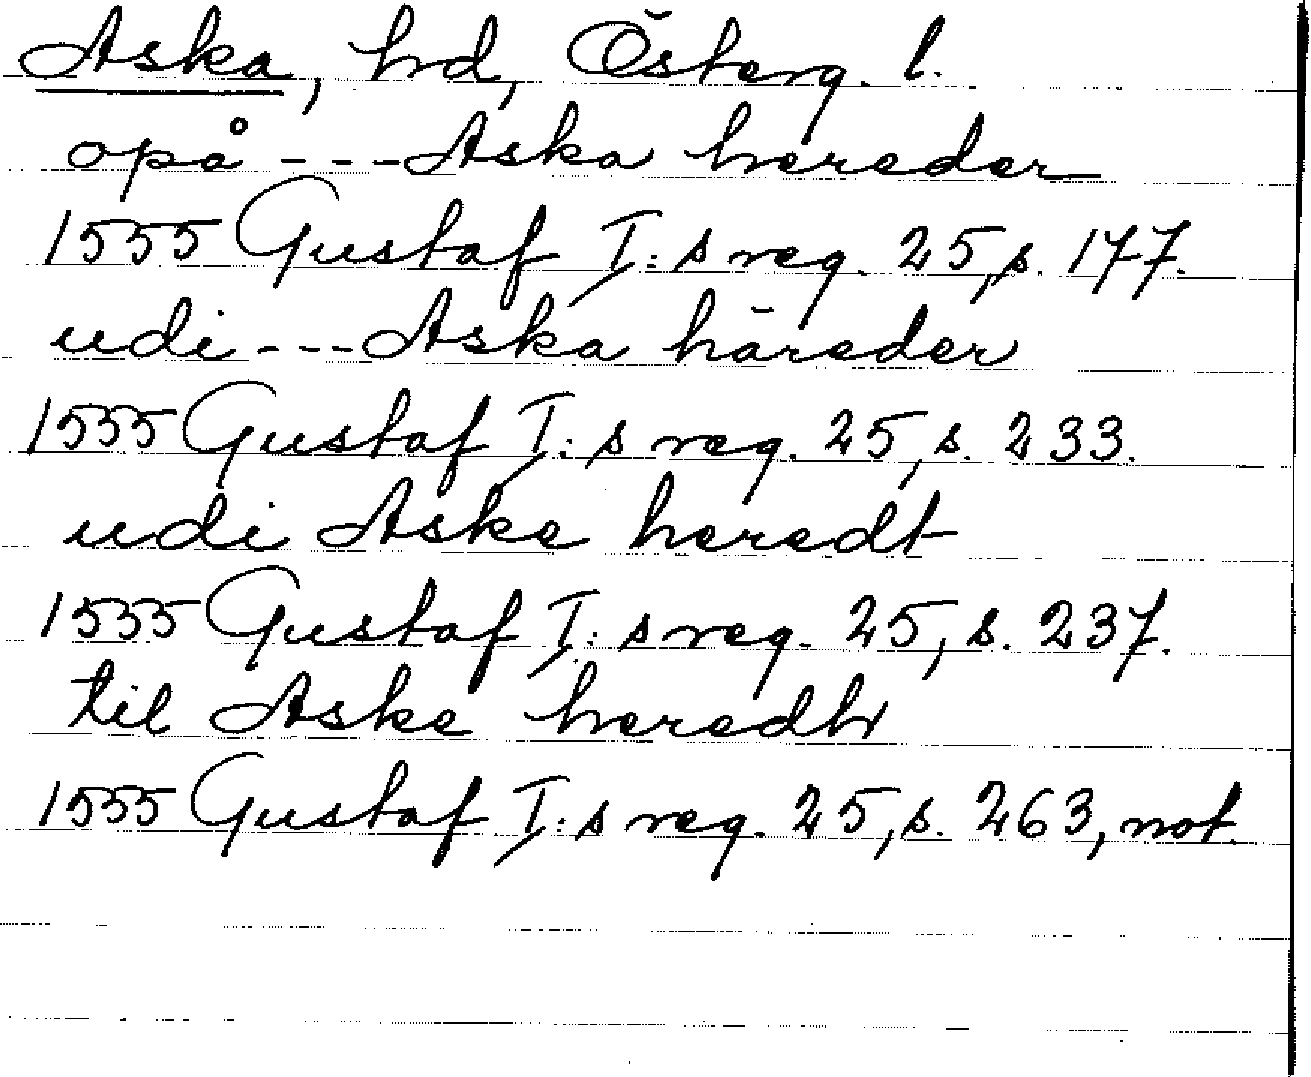 Aska, hd, Österg. l.
opå --- Aska hereder
1555 Gustaf I:s reg. 25, s. 177.
udi --- Aska häreder
1555 Gustaf I:s reg. 25, s. 233.
udi Aske heredt
1555 Gustaf I:s reg. 25, s. 237.
til Aske heredh
1555 Gustaf I:s reg. 25, s. 263, not.